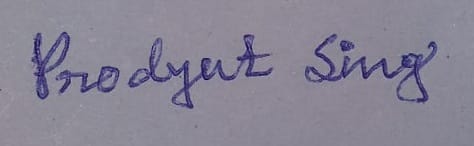 Prodyut Sing